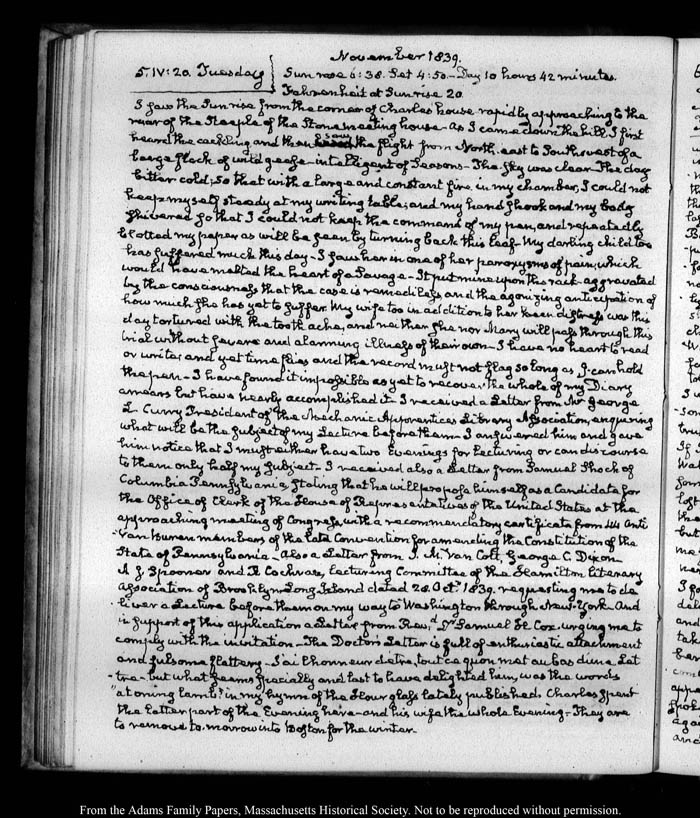 November 1839.
5. IV: 20. Tuesday
Sun rose 6:38. Set 4:50 - Day 10 hours 42 minutes.
Fahrenheit at Sunrise 20.
I saw the Sun rise from the corner of Charles house rapidly approaching to the
rear of the Steeple of the Stone meeting house - As I came down the hill, I first
heard the cackling and then saw the flight from North-east to Southwest of a
large flock of wild geese - intelligent of Seasons - The Sky was clear - The day
bitter cold; so that with a large and constant fire in my chamber, I could not
keep myself steady at my writing table; and my hand shook and my body
shivered so that I could not keep the command of my pen, and repeatedly
blotted my paper as will be seen by turning back this leaf - My darling child too
has suffered much this day - I saw her in one of her paroxysms of pain, which
would have melted the heart of a Savage - It put mine upon the rack - aggravated
by the consciousness that the case is remediless and the agonizing anticipation of
how much she has yet to suffer. My wife too in addition to her keen distress was this
day tortured with the tooth ache, and neither she nor Mary will pass through this
trial without severe and alarming illness of their own - I have no heart to read
or write; and yet time flies and the record must not flag so long as I can hold
the pen - I have found it impossible as yet to recover the whole of my Diary
arrears but have nearly accomplished it - I received a Letter from Mr George
L. Curry President of the Mechanic Apprentices Library Association, enquiring
what will be the subject of my Lecture before them - I answered him and gave
him notice that I must either have two Evenings for lecturing or can discourse
to them only half my subject - I received also a Letter from Samuel Shoch of
Columbia Pennsylvania, stating that he will propose himself as a Candidate for
the Office of Clerk of the House of Representatives of the United States at the
approaching meeting of Congress, with a recommendatory certificate from 44 Anti
Van Buren members of the late Convention for amending the Constitution of the
State of Pennsylvania - Also a Letter from J. M. Van Cott, George C. Dixon
A J Spooner and R Cochran, lecturing Committee of the Hamilton literary
Association of Brooklyn Long-Island dated 28. Oct.r 1839. requesting me to de
liver a Lecture before them on my way to Washington through New-York. And
in support of this application a Letter from Rev.d Dr Samuel H. Cox urging me to
comply with the invitation - The Doctor's Letter is full of enthusiastic attachment
and fulsome flattery - J'ai l'honneur d'etre, tout ce qu'on met au bas d'une Let
-tre - but what seems specially and last to have delighted him, was the words
"atoning lamb" in my hymn of the Hour glass lately published. Charles spent
the latter part of the Evening here - and his wife the whole Evening - They are
to remove to-morrow into Boston for the winter.
From the Adams Family Papers, Massachusetts Historical Society. Not to be reproduced without permission.